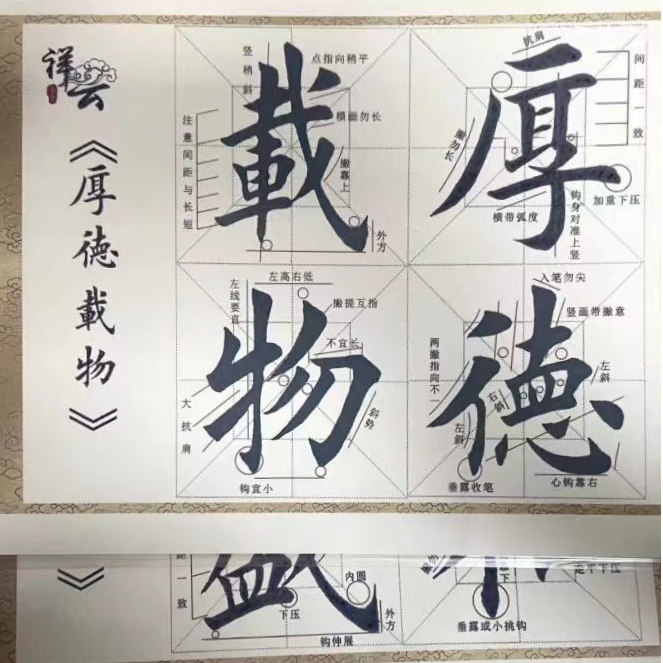 祥云
《厚德載物》
厚
抗肩
间距一致
撇勿长
加重下压
横带弧度
钩身对准上竖
德
入笔勿尖
竖画带撇意
两撇指向不一
左斜
右斜
左斜
垂露收笔
心钩靠右
載
竖稍斜
点指向稍平
横画勿长
注意间距与长短
撇靠上
外方
物
左高右低
左线要直
撇提互指
不宜长
大抗肩
斜势
钩宜小
》
距一致
内圆
下压
外方
钩伸展
垂露或小挑钩
走平下压